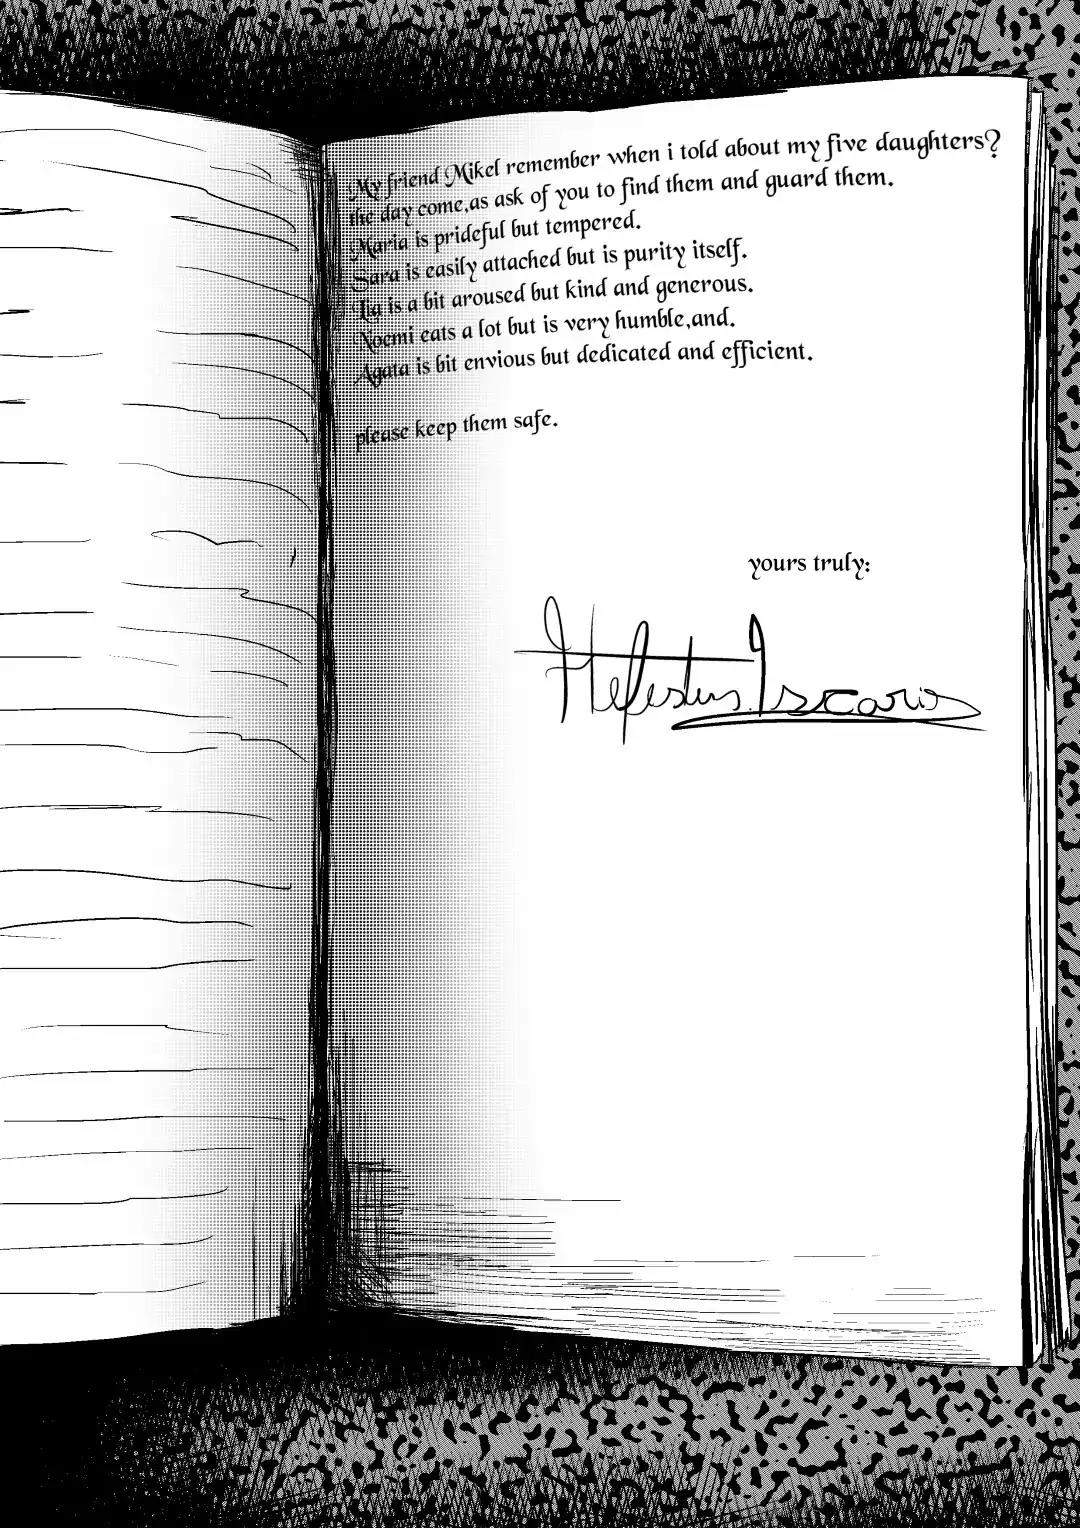 My friend Mikel remember when i told about my five daughters?
the day come,as ask of you to find them and guard them.
Maria is prideful but tempered.
Sara is easily attached but is purity itself.
Lia is a bit aroused but kind and generous.
Noemi eats a lot but is very humble,and.
Agata is bit envious but dedicated and efficient.
please keep them safe.
yours truly:
Hefestus Iscario